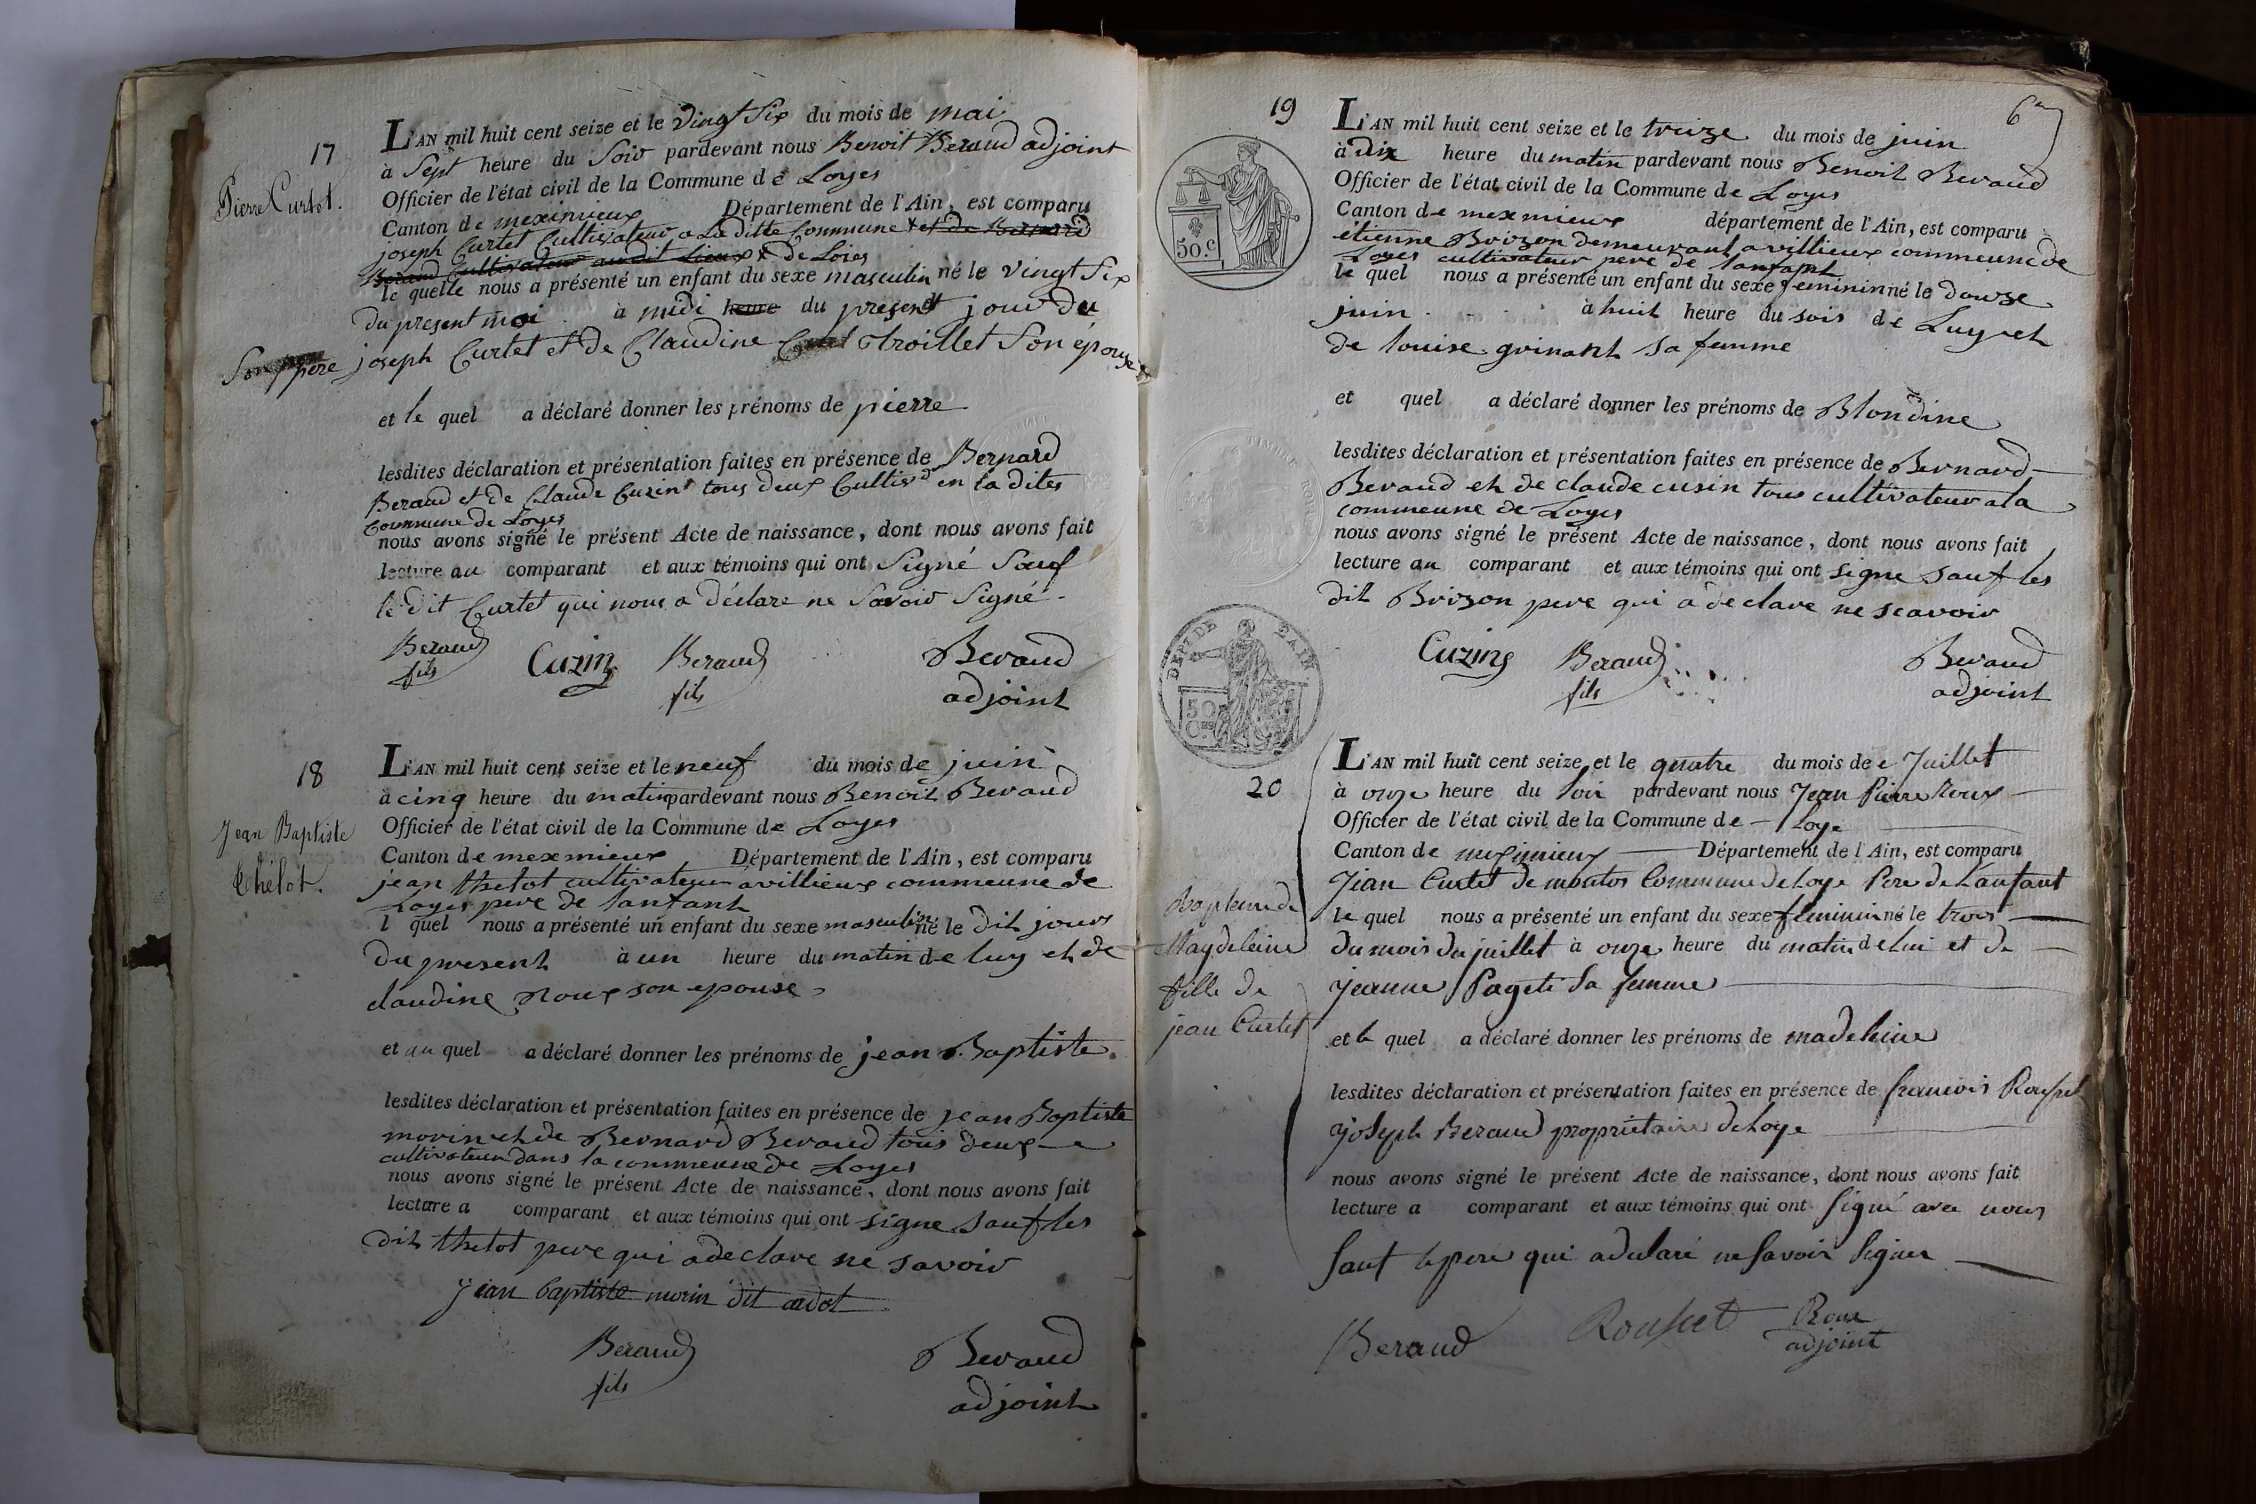 17
Pierre Curtet.
L'AN mil huit cent seize et le vingt Six du mois de mai
à Sept heure du Soir pardevant nous Benoit Beraud adjoint
Officier de l'état civil de la Commune de Loyes
Canton de meximieux Département de l'Ain, est comparu
joseph Curtet Cultivateur a La ditte Commune et de Bernard
Beraud Cultivateur au dit Lieux de Loies
le quelle nous a présenté un enfant du sexe masculin né le vingt Six
du present moi à midi heure du present jour de
Son pere joseph Curtet et de Claudine troillet Son épouse
et le quel a déclaré donner les prénoms de pierre
lesdites déclaration et présentation faites en présence de Bernard
Beraud et de Claude Cuzin tous deux Cultivd en la dites
Commune de Loyes
nous avons signé le présent Acte de naissance, dont nous avons fait
lecture au comparant et aux témoins qui ont Signé Sauf
le dit Curtet qui nous a déclare ne Savoir Signé
Beraud Cuzin Beraud Beraud
fils fils adjoint
18
Jean Baptiste
thelot.
L'AN mil huit cent seize et le neuf du mois de juin
à cinq heure du matin pardevant nous Benoit Beraud
Officier de l'état civil de la Commune de Loyes
Canton de meximieux Département de l'Ain, est comparu
jean thelot cultivateur a villieux commeune de
Loyes pere de lanfant
l quel nous a présenté un enfant du sexe masculin né le dit jour
du present à un heure du matin de luy et de
claudine roux son epouse
et au quel a déclaré donner les prénoms de jean Baptiste
lesdites déclaration et présentation faites en présence de jean Baptiste
morin et de Bernard Beraud tous deux
cultivateur dans la commeune de Loyes
nous avons signé le présent Acte de naissance, dont nous avons fait
lecture a comparant et aux témoins qui ont signe sauf les
dit thelot pere qui a declare ne savoir
jean baptiste morin dit
Beraud Beraud
fils adjoint
19
6
50.c
L'AN mil huit cent seize et le treize du mois de juin
à dix heure du matin pardevant nous Benoit Beraud
Officier de l'état civil de la Commune de Loyes
Canton de meximieux département de l'Ain, est comparu
etienne Brizon demeurant a villieux commeune de
Loyes cultivateur pere de lanfant
le quel nous a présenté un enfant du sexe feminin né le douze
juin à huit heure du soir de Luy et
de louise grinant sa femme
et quel a déclaré donner les prénoms de Blondine
lesdites déclaration et présentation faites en présence de Bernard
Beraud et de claude cusin tous cultivateur a la
commeune de Loyes
nous avons signé le présent Acte de naissance, dont nous avons fait
lecture au comparant et aux témoins qui ont signe sauf les
dit Brizon pere qui a declare ne scavoir
Cuzin Beraud Beraud
fils adjoint
DEPT DE L'AIN
50
20
Magdeleine
fille de
jean Curtet
L'AN mil huit cent seize et le quatre du mois de Juillet
à onze heure du soir pardevant nous Jean Pierre Roux
Officier de l'état civil de la Commune de Loye
Canton de meximieux Département de l'Ain, est comparu
Jean Curtet de Commune de Loye Pere de Lanfant
le quel nous a présenté un enfant du sexe feminin né le trois
du mois du juillet à onze heure du matin de lui et de
jeanne Sa femme
et le quel a déclaré donner les prénoms de madeleine
lesdites déclaration et présentation faites en présence de francois Rousset
joseph Beraud propriétaire de Loye
nous avons signé le présent Acte de naissance, dont nous avons fait
lecture a comparant et aux témoins qui ont Signé avec nous
Sauf le pere qui a declaré ne Savoir Signer
Beraud Rousset Roux
adjoint